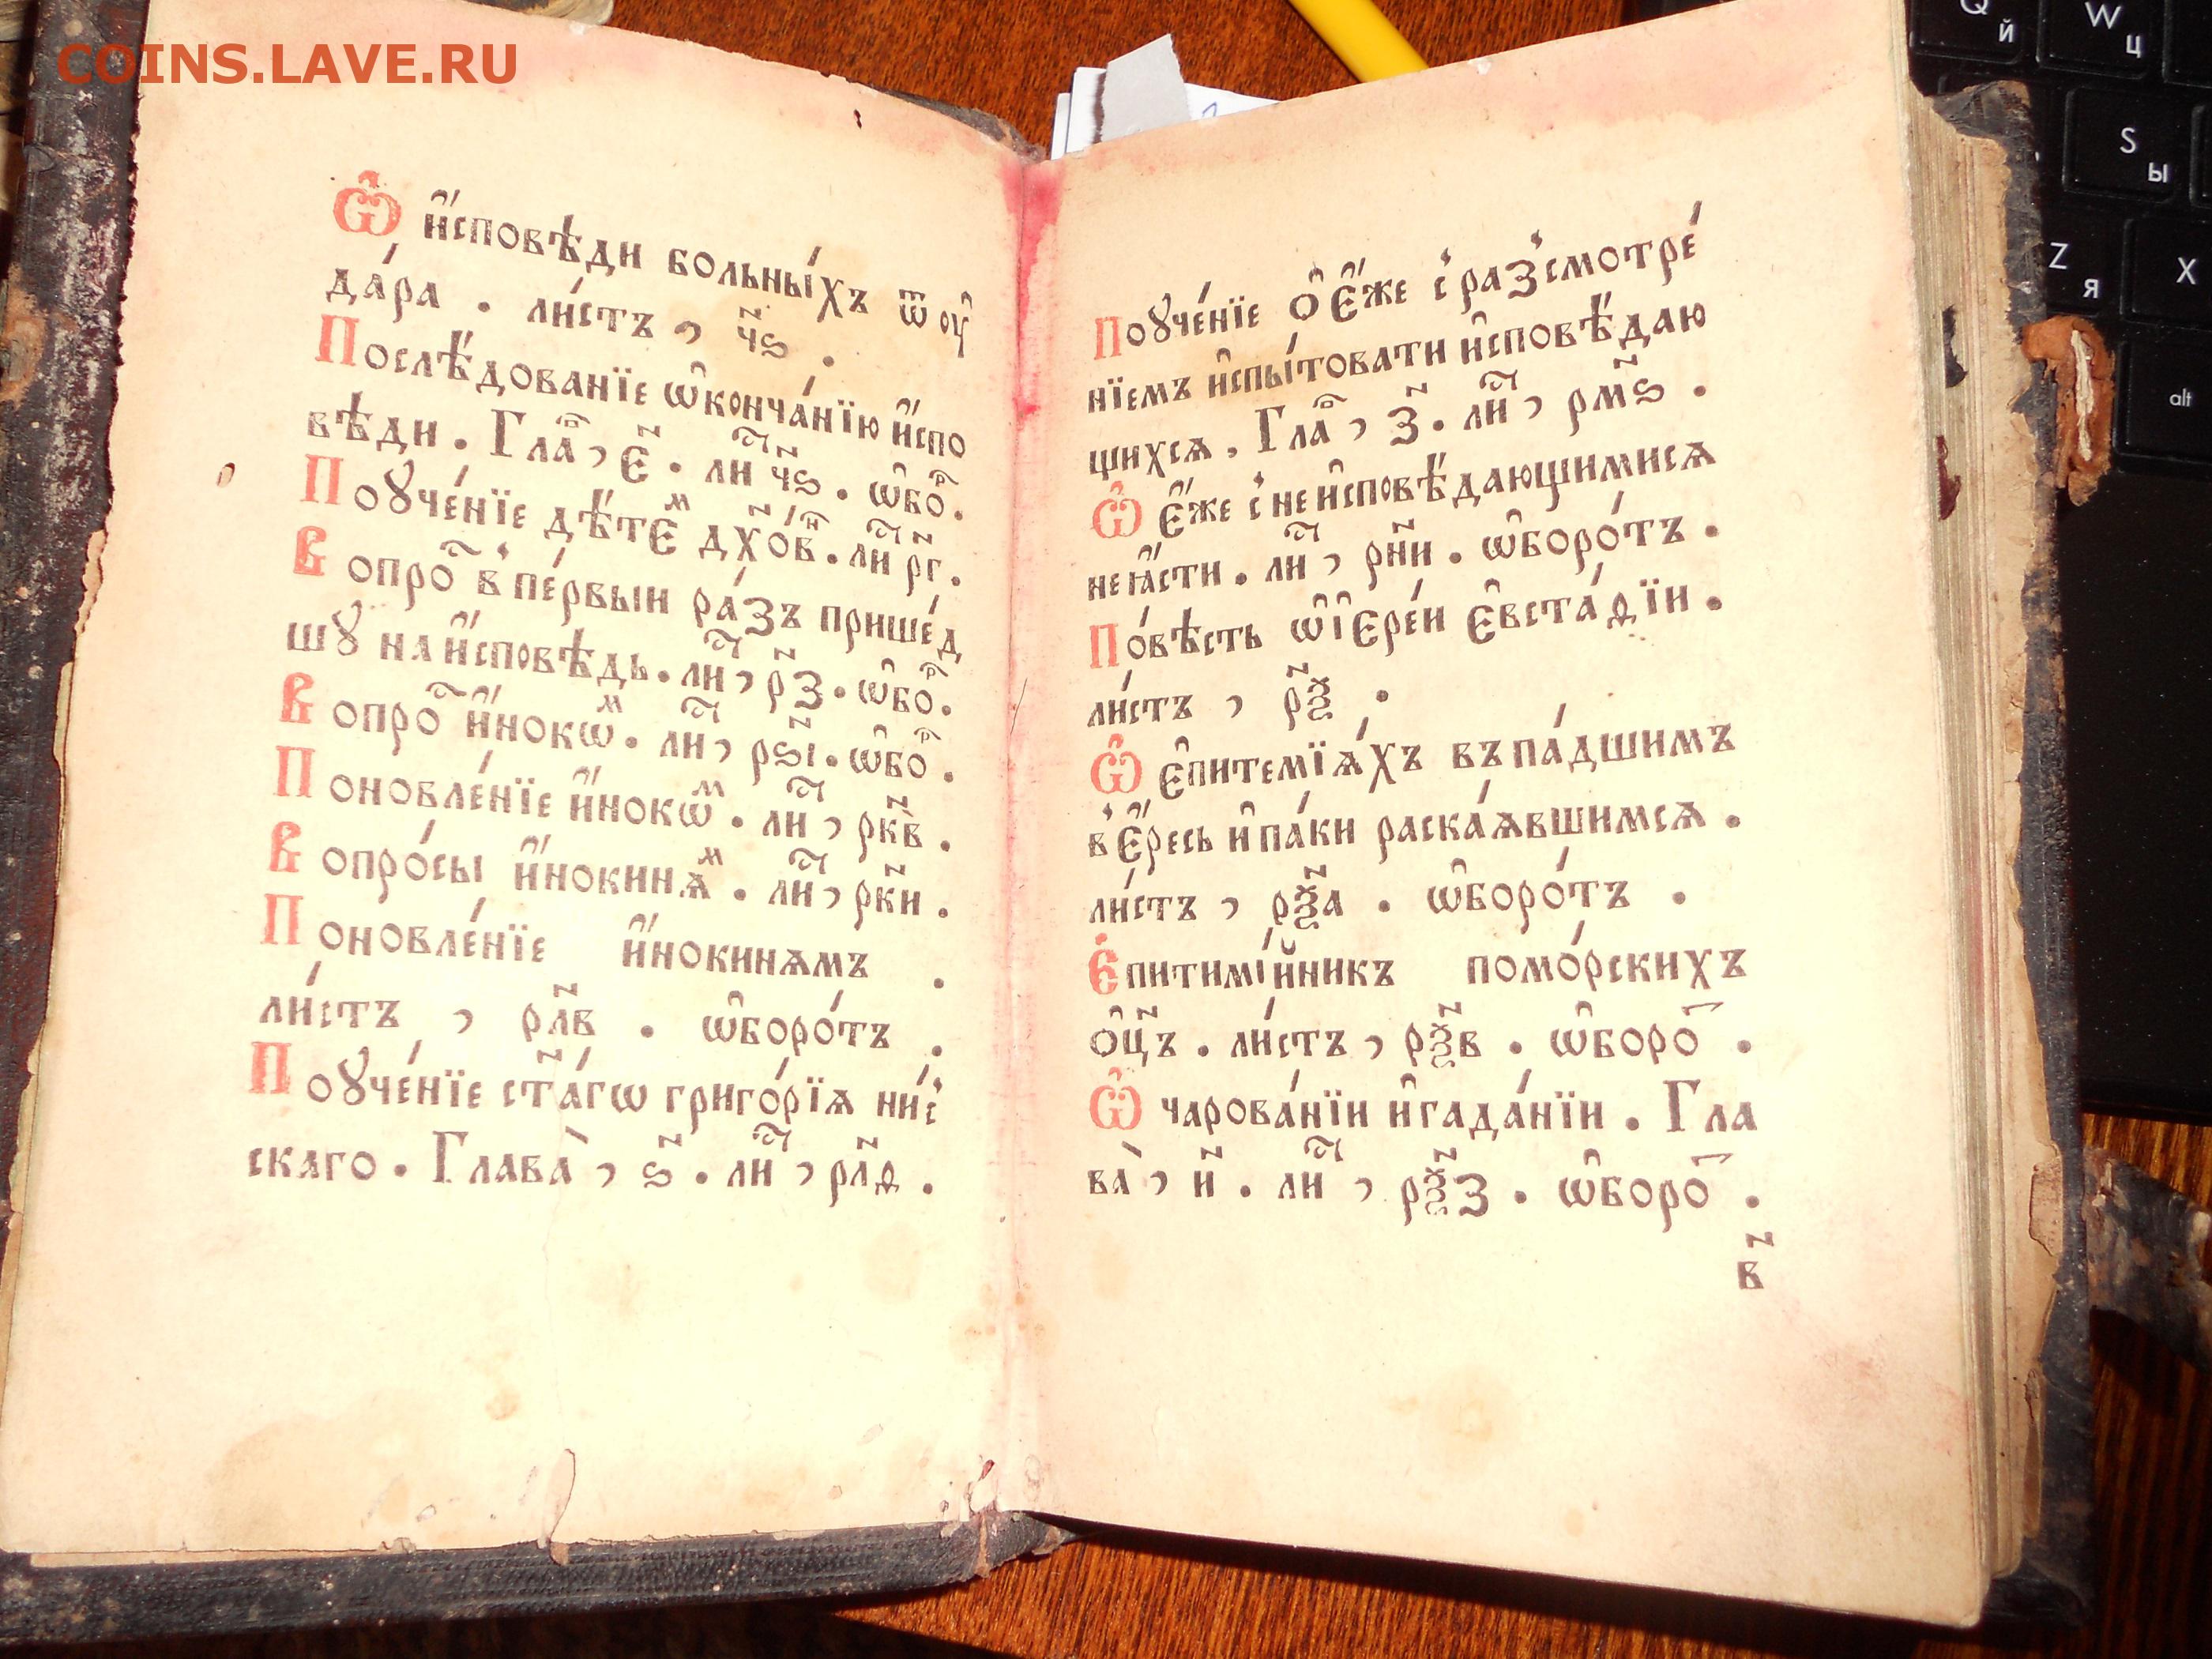 COINS.LAVE.RU
Ѽ и҆́сповѣди больны́хъ ѿ ѹ҆
да́ра . ли́стъ , ч҃ѕ .
Послѣ́дованїе ѡ҆конча́нїю и҆́спо
вѣди . Глаⷡ҇ , є҃ . лиⷭ҇ ч҃ѕ . ѡ҆боⷬ҇ .
Поꙋче́нїе дѣ́теⷨ дх҃о́вⷩ҇ . лиⷭ҇ р҃г .
Вопроⷭ҇ в пе́рвыи ра́зъ прише́д
шꙋ на и҆́сповѣдь . лиⷭ҇ , р҃з . ѡ҆боⷬ҇ .
Вопроⷭ҇ и҆́нокѡⷨ . лиⷭ҇ , рѕ҃і . ѡ҆боⷬ҇ .
Поновле́нїе и҆́нокѡⷨ . лиⷭ҇ , рк҃в .
Вопро́сы и҆́нокинѧⷨ . лиⷭ҇ , рк҃и .
Поновле́нїе и҆́нокинѧмъ .
ли́стъ , рл҃в . ѡ҆боро́тъ .
Поꙋче́нїе ст҃а́гѡ григо́рїѧ ни́с
скаго . Глава̀ , ѕ҃ . лиⷭ҇ , рл҃ѳ .
Поꙋче́нїе о҆ є҆́же с разсмотре́
нїемъ и҆спы́товати и҆сповѣ́даю
щихсѧ . Глаⷡ҇ , з҃ . лиⷭ҇ , рм҃ѕ .
Ѽ є҆́же с не и҆сповѣ́дающимисѧ
не ꙗ҆́сти . лиⷭ҇ , рн҃и . ѡ҆боро́тъ .
По́вѣсть ѡ҆ і҆ере́и є҆вста́ѳїи .
ли́стъ , рѯ҃ .
Ѽ є҆питемїѧ́хъ въпа́дшимъ
в є҆́ресь и҆ па́ки раска́ѧвшимсѧ .
ли́стъ , рѯ҃а . ѡ҆боро́тъ .
Епитимі́йникъ помо́рскихъ
о҆ц҃ъ . ли́стъ , рѯ҃в . ѡ҆бороⷮ .
Ѽ чарова́нїи и҆ гада́нїи . Гла
ва̀ , и҃ . лиⷭ҇ , рѯ҃з . ѡ҆бороⷮ .
в҃